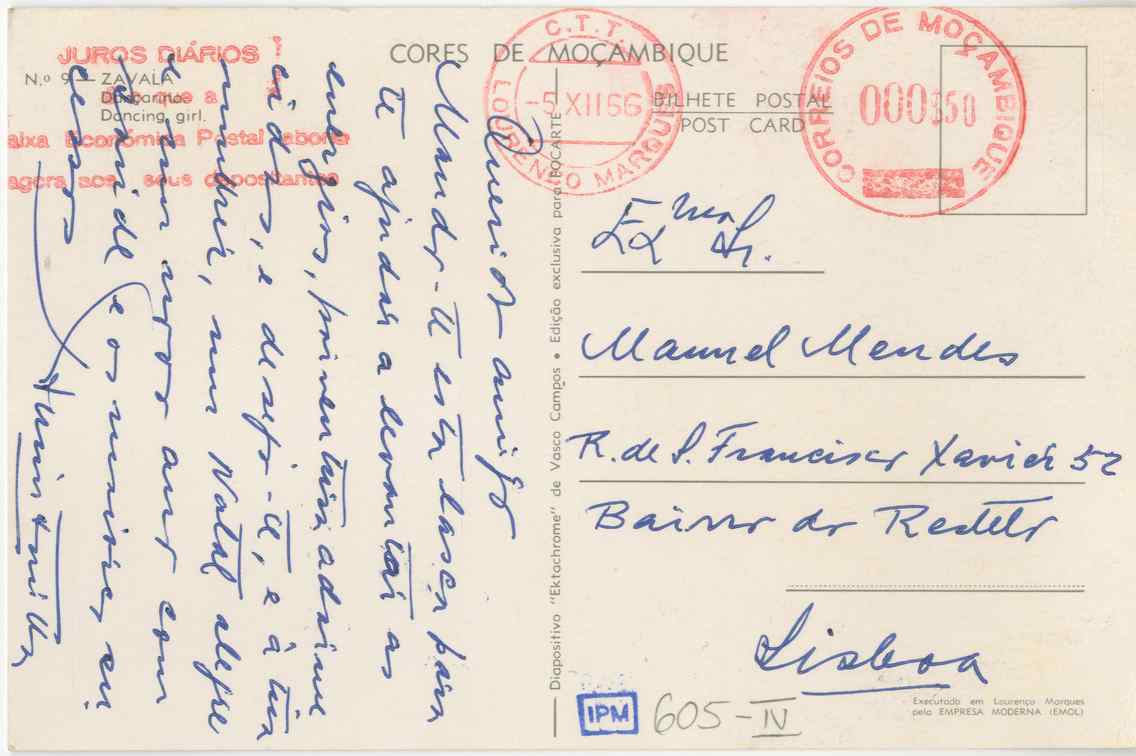 CORES DE MOÇAMBIQUE
N.º 9 — ZAVALA
Dançarina.
Dancing girl.
JUROS DIÁRIOS !
é o que a
aixa Económica Postal abona
agora aos seus depositantes
C.T.T.
-5.XII66
LOURENÇO MARQUES
BILHETE POSTAL
POST CARD
CORREIOS DE MOÇAMBIQUE
000$50
Querido amigo
Mando-te esta lasca para
te ajudar a levantar as
energias, porventura adorme
cidas, e desejo-te, e à tua
mulher, um Natal alegre
e um novo ano com
saúde e os maiores su
cessos
Diapositivo "Ektachrome" de Vasco Campos • Edição exclusiva para FOCARTE
Exmo Sr.
Manuel Mendes
R. de S. Francisco Xavier 52
Bairro do Restelo
Lisboa
Executado em Lourenço Marques
pela EMPRESA MODERNA (EMOL)
IPM
605-IV